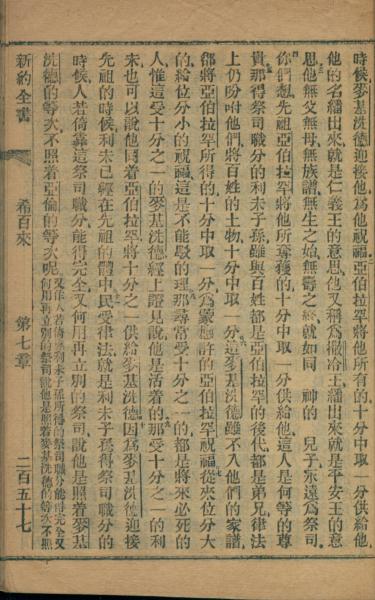 時候麥基洗德迎接他爲他祝福亞伯拉罕將他所有的十分中取一分供給他
他的名繙出來就是仁義王的意思他又稱爲撒冷王繙出來就是平安王的意
思他無父無母無族譜無生之始無壽之終就如同　神的　兒子永遠爲祭司
你們想先祖亞伯拉罕將他所奪獲的十分中取一分供給他這人是何等的尊
貴那得祭司職分的利未子孫雖與百姓都是亞伯拉罕的後代都是弟兄律法
上仍吩咐他們將百姓的土物十分中取一分這麥基洗德雖不入他們的家譜
卻將亞伯拉罕所得的十分中取一分爲蒙應許的亞伯拉罕祝福從來位分大
的給位分小的祝福這是不能駁的理那尋常受十分之一的都是將來必死的
人惟這受十分之一的麥基洗德經上證見說他是活着的那受十分之一的利
未也可以說他因着亞伯拉罕將十分之一供給麥基洗德因爲麥基洗德迎接
先祖的時候利未已經在先祖的體中民受律法就是利未子孫得祭司職分的
時候人若倚靠這祭司職分能得完全又何用再立別的祭司說他是照着麥基
洗德的等次不照着亞倫的等次呢
又作人若倚靠利未子孫所得的祭司職分能得完全又
何用再立別的祭司說他是照着麥基洗德的等次不照
新約全書　希百來　第七章　二百五十七